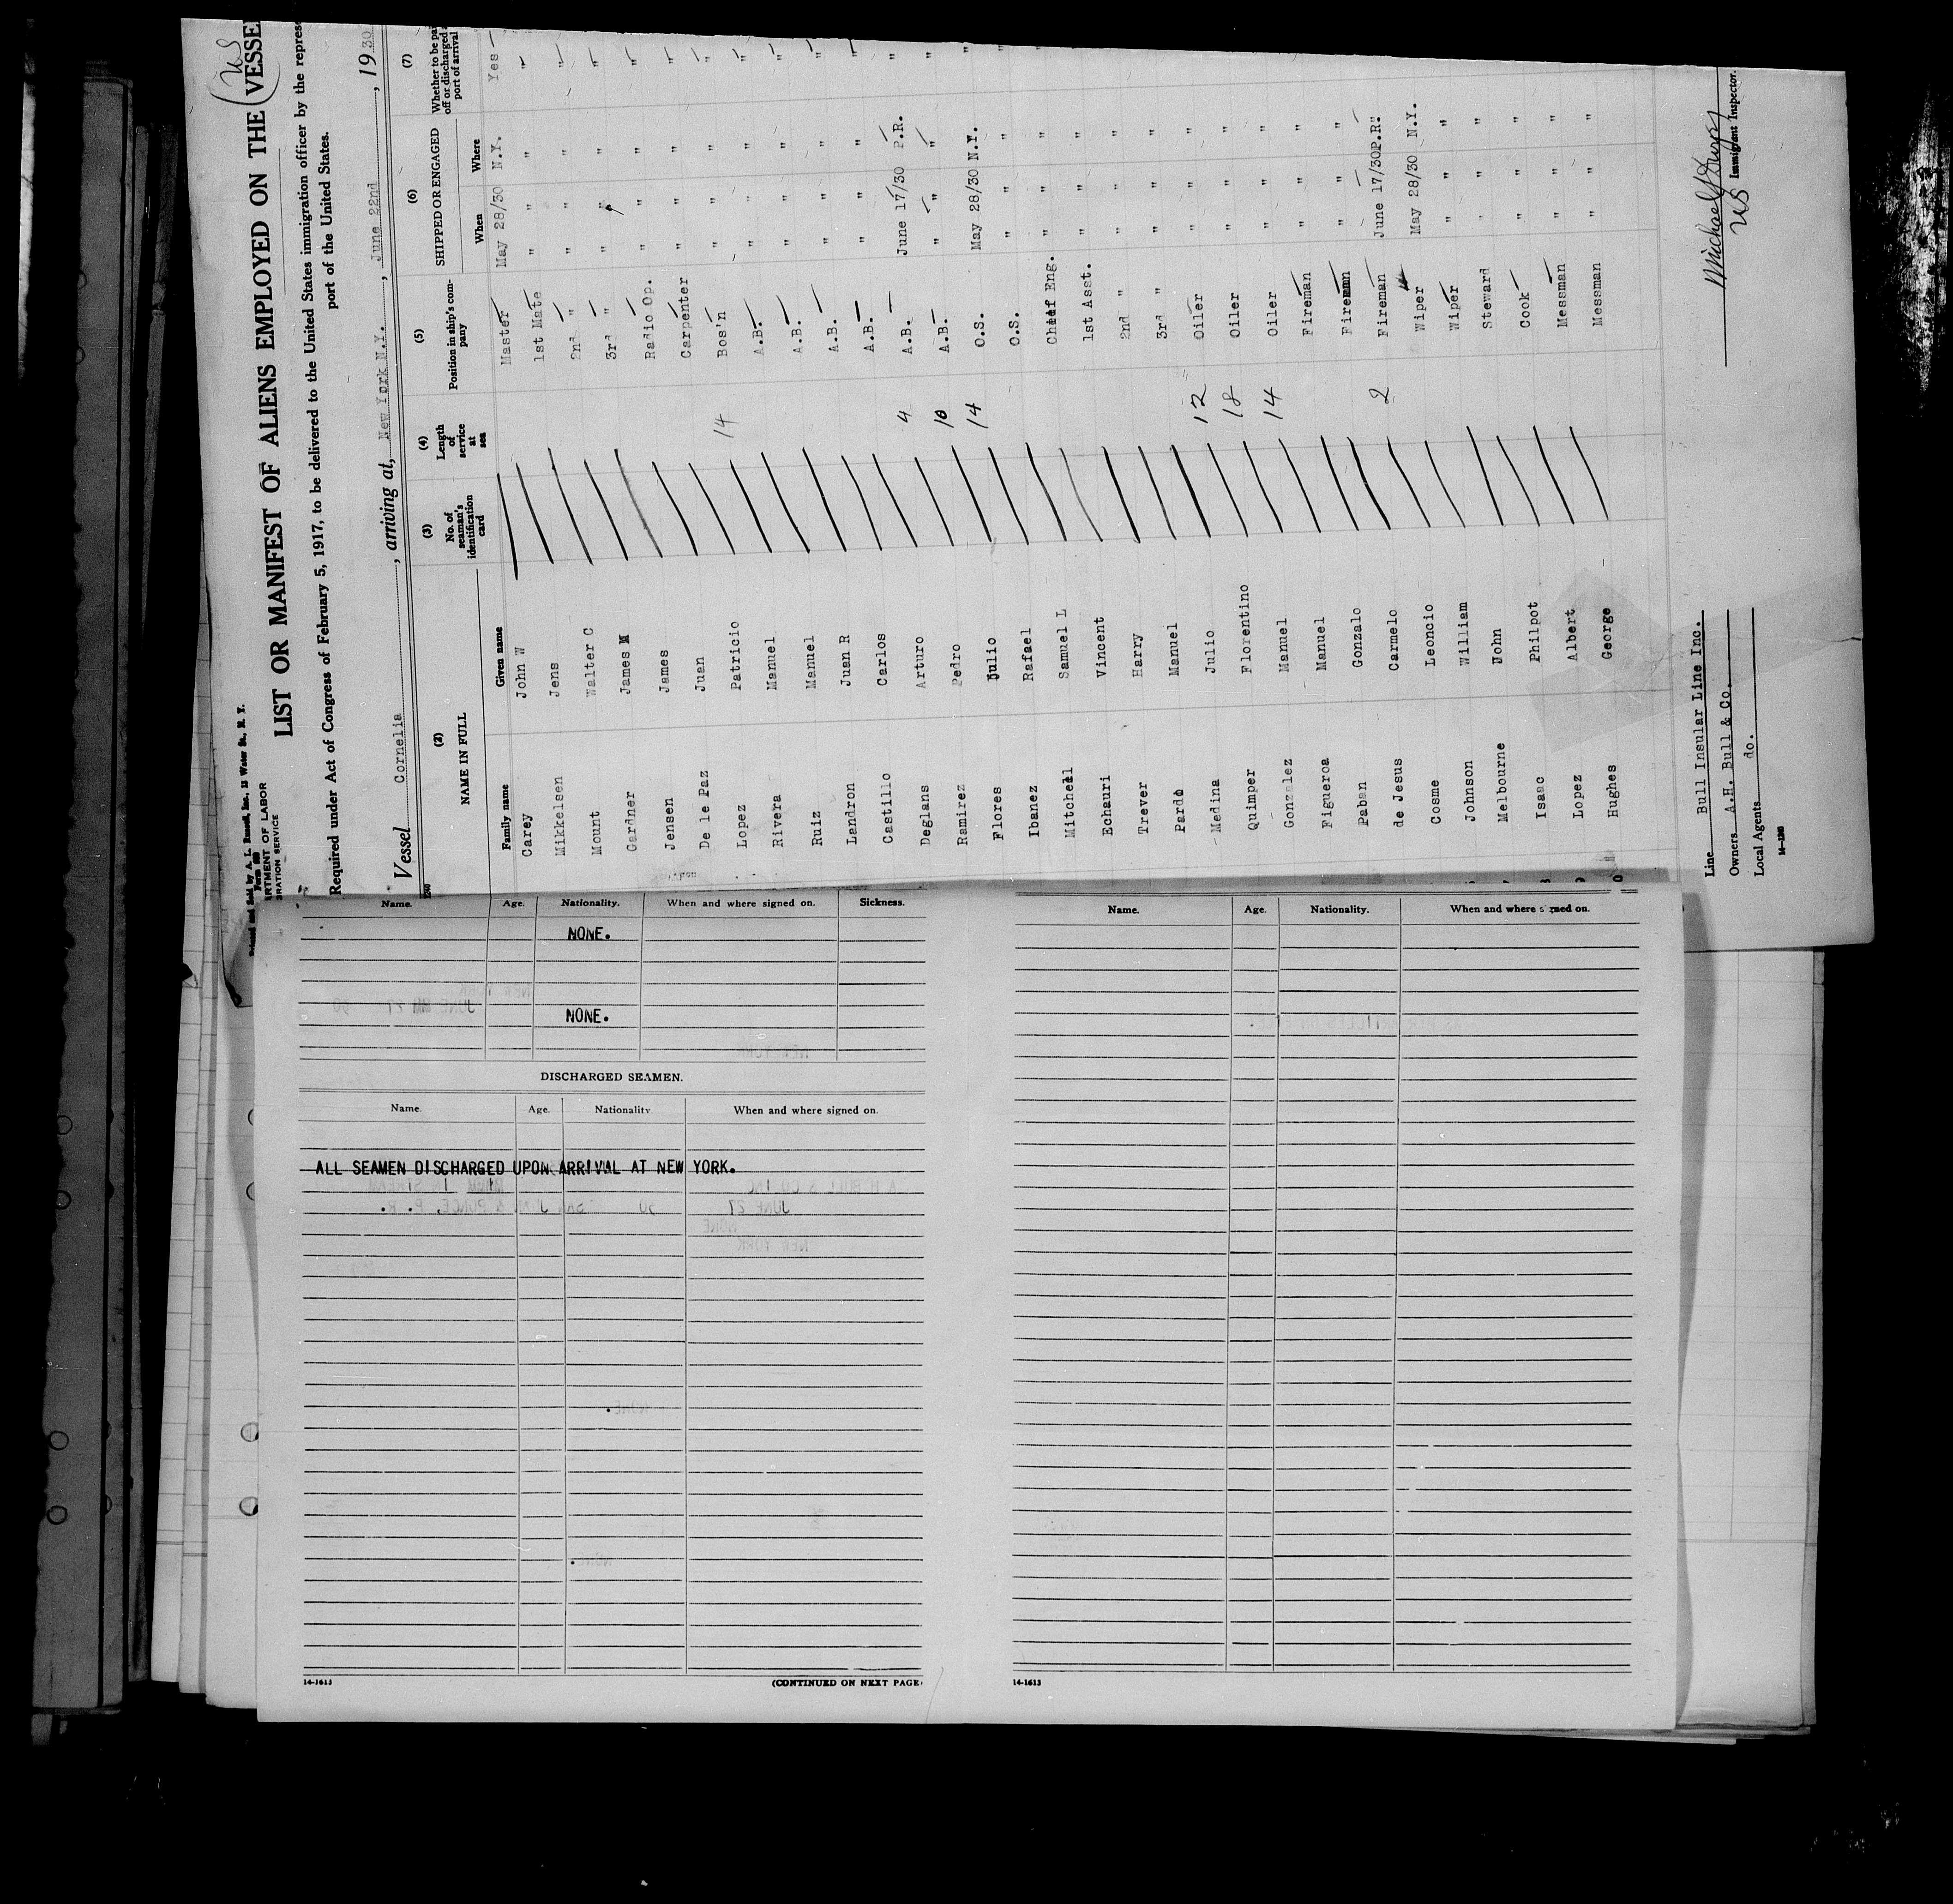 Printed and Sold by A. L. Russell, Inc., 13 Water St., N. Y.
Form 689
ARTMENT OF LABOR
GRATION SERVICE
US
LIST OR MANIFEST OF ALIENS EMPLOYED ON THE VESSEL
Required under Act of Congress of February 5, 1917, to be delivered to the United States immigration officer by the repres
port of the United States.
Vessel Cornelia, arriving at, New York N.Y., June 22nd, 1930
(2) (3) (4) (5) (6) (7)
NAME IN FULL No. of seaman's identification card Length of service at sea Position in ship's company SHIPPED OR ENGAGED Whether to be pai off or discharged port of arrival
Family name Given name When Where
Carey John W Master May 28/30 N.Y. Yes
Mikkelsen Jens 1st Mate " " "
Mount Walter C 2nd " " " "
Gardner James M 3rd " " " "
Jensen James Radio Op. " " "
De le Paz Juan Carpenter " " "
Lopez Patricio 14 Bos'n " " "
Rivera Manuel A.B. " " "
Ruiz Manuel A.B. " " "
Landron Juan R A.B. " " "
Castillo Carlos A.B. " " "
Deglans Arturo 4 A.B. June 17/30 P.R. "
Ramirez Pedro 10 A.B. " " "
Flores Julio 14 O.S. May 28/30 N.Y. "
Ibanez Rafael O.S. " " "
Mitchell Samuel L Chief Eng. " " "
Echauri Vincent 1st Asst. " "
Trever Harry 2nd " " "
Pardo Manuel 3rd " " "
Medina Julio 12 Oiler " "
Quimper Florentino 18 Oiler " "
Gonzalez Manuel 14 Oiler " "
Figueroa Manuel Fireman " "
Paban Gonzalo Fireman " "
de Jesus Carmelo 2 Fireman June 17/30 P.R.
Cosme Leoncio Wiper May 28/30 N.Y.
Johnson William Wiper " "
Melbourne John Steward " "
Isaac Philpot Cook " "
Lopez Albert Messman " "
Hughes George Messman " "
Line Bull Insular Line Inc.
Owners A.H. Bull & Co.
Local Agents do.
14-1240
US Immigrant Inspector.
Name. Age. Nationality. When and where signed on. Sickness.
NONE.
NONE.
DISCHARGED SEAMEN.
Name. Age. Nationality When and where signed on.
ALL SEAMEN DISCHARGED UPON ARRIVAL AT NEW YORK.
14-1613 (CONTINUED ON NEXT PAGE)
Name. Age. Nationality. When and where signed on.
14-1613